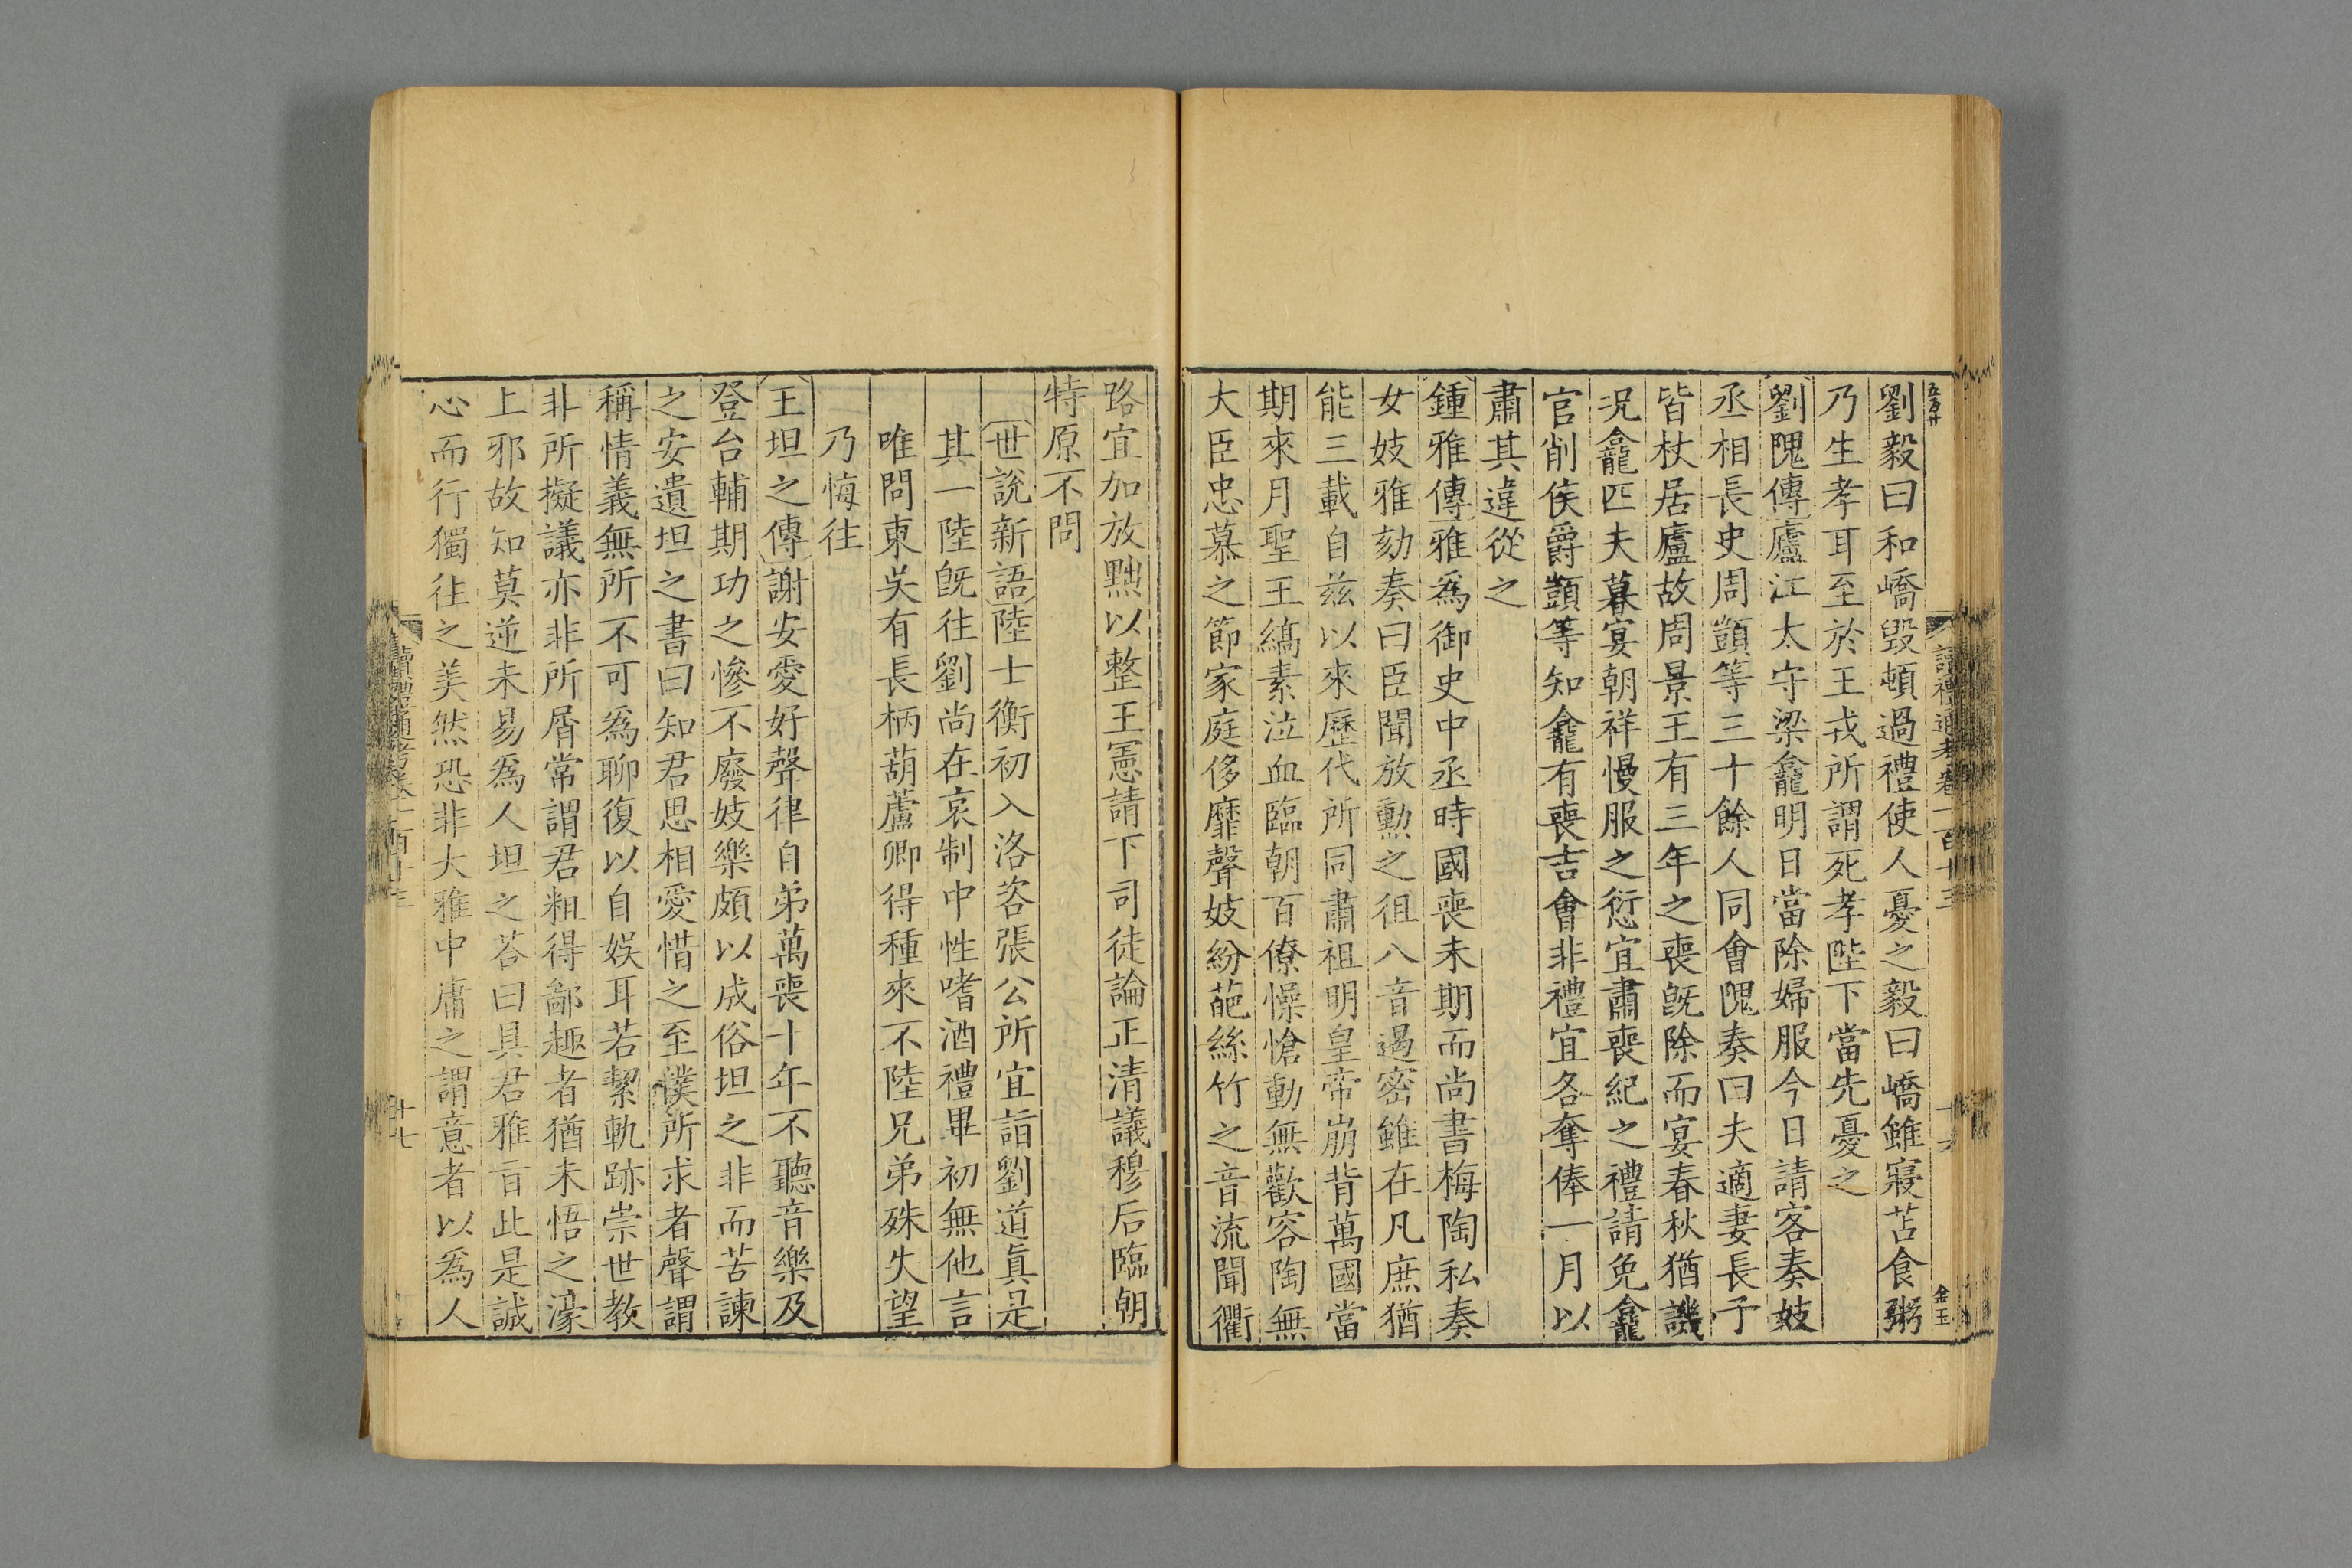 劉毅曰和嶠毀頓過禮使人憂之毅曰嶠雖寢苫食粥
乃生孝耳至於王戎所謂死孝陛下當先憂之
劉隗傳廬江太守梁龕明日當除婦服今日請客奏妓
丞相長史周顗等三十餘人同會隗奏曰夫適妻長子
皆杖居廬故周景王有三年之喪旣除而宴春秋猶譏
況龕匹夫暮宴朝祥慢服之愆宜肅喪紀之禮請免龕
官削侯爵顗等知龕有喪吉會非禮宜各奪俸一月以
肅其違從之
鍾雅傳雅爲御史中丞時國喪未期而尚書梅陶私奏
女妓雅劾奏曰臣聞放勳之徂八音遏密雖在凡庶猶
能三載自茲以來歷代所同肅祖明皇帝崩背萬國當
期來月聖王縞素泣血臨朝百僚懆愴動無歡容陶無
大臣忠慕之節家庭侈靡聲妓紛葩絲竹之音流聞衢
路宜加放黜以整王憲請下司徒論正清議穆后臨朝
特原不問
世說新語陸士衡初入洛咨張公所宜詣劉道眞是
其一陸旣往劉尚在哀制中性嗜酒禮畢初無他言
唯問東吳有長柄葫蘆卿得種來不陸兄弟殊失望
乃悔往
王坦之傳謝安愛好聲律自弟萬喪十年不聽音樂及
登台輔期功之慘不廢妓樂頗以成俗坦之非而苦諫
之安遺坦之書曰知君思相愛惜之至僕所求者聲謂
稱情義無所不可爲聊復以自娛耳若絜軌跡崇世教
非所擬議亦非所屑常謂君粗得鄙趣者猶未悟之濠
上邪故知莫逆未易爲人坦之荅曰具君雅旨此是誠
心而行獨往之美然恐非大雅中庸之謂意者以爲人
讀禮通考卷一百十三
十七
金玉